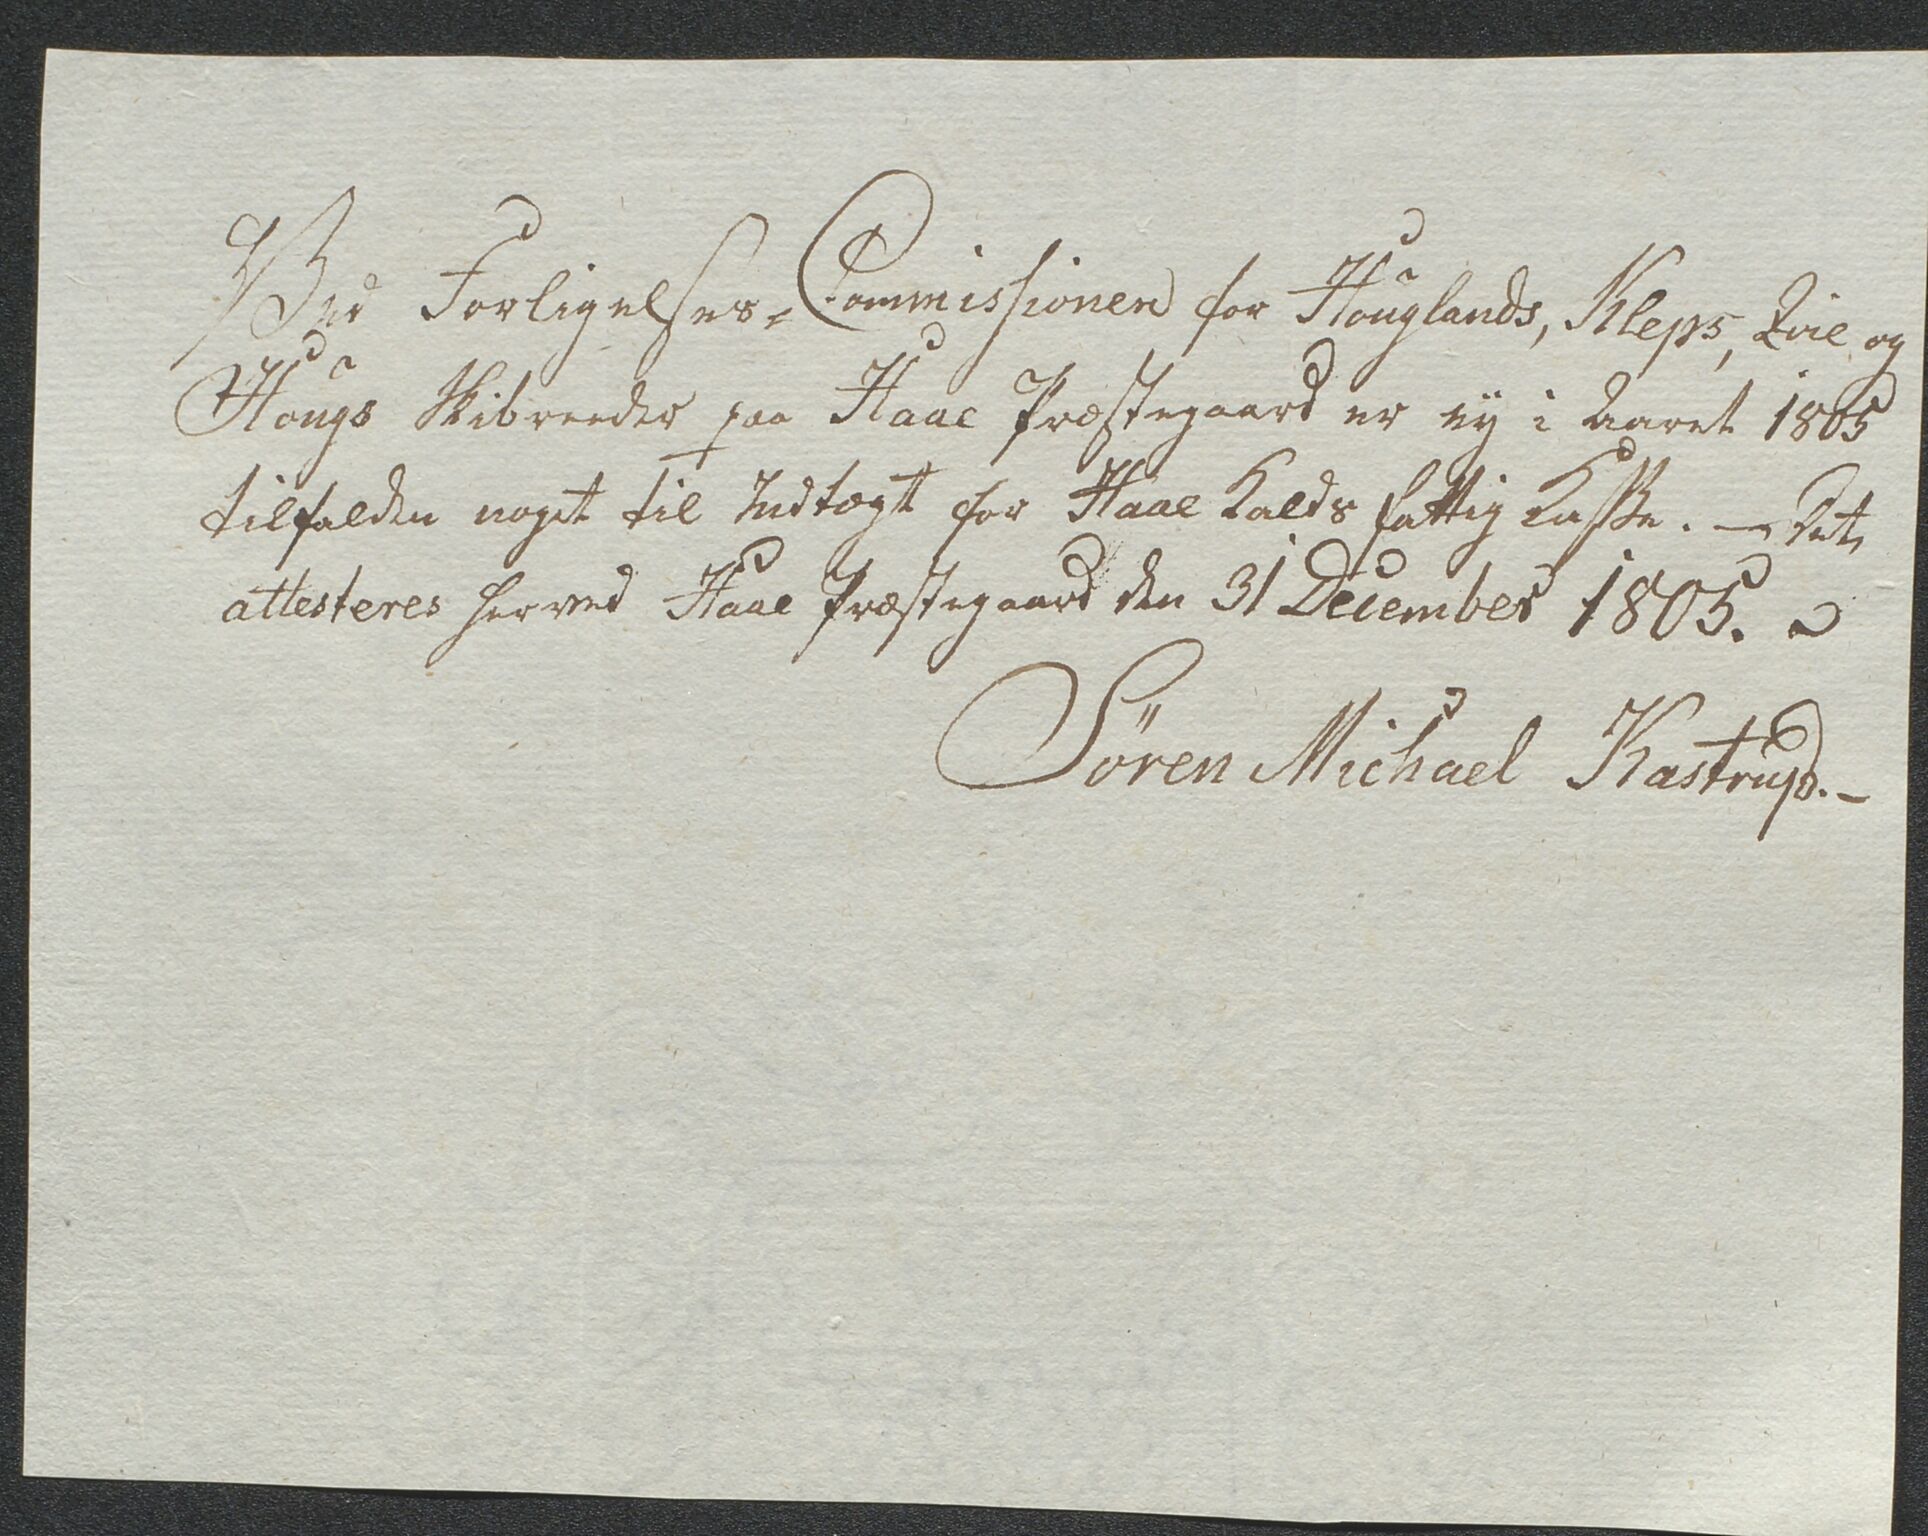 Ved Forligelses-Commissionen for Houglands, Kleps, Qvie og
Hougs Skibreeder paa Haae Præstegaard er ey i Aaret 1805
tilfalden noget til Indtægt for Haae Kalds fattig Kasse. — Det
attesteres herved Haae Præstegaard den 31 December 1805.
Søren Michael Kastrup. -